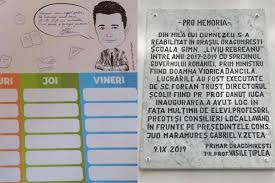 URI
JOI
VINERI
-PRO MEMORIA-
DIN MILA LUI DUMNEZEU S-A
REABILITAT ÎN ORAȘUL DRAGOMIREȘTI
ȘCOALA GIMN. „LIVIU REBREANU”
ÎNTRE ANII 2017-2019 CU SPRIJINUL
GUVERNULUI ROMÂNIEI, PRIM MINISTRU
FIIND DOAMNA VIORICA DĂNCILĂ.
LUCRĂRILE AU FOST EXECUTATE
DE SC FOREAN TRUST, DIRECTORUL
ȘCOLII FIIND PR. PROF DANUȚ IUGA
INAUGURAREA A AVUT LOC ÎN
FAȚA MULȚIMII DE ELEVI, PROFESORI,
PREOȚI ȘI CONSILIERI LOCALI, AVÂND
ÎN FRUNTE PE PREȘEDINTELE CONS.
JUD MARAMUREȘ GABRIEL VZETEA
9 IX 2019
PRIMAR DRAGOMIREȘTI
PR. PROF. VASILE ȚIPLEA